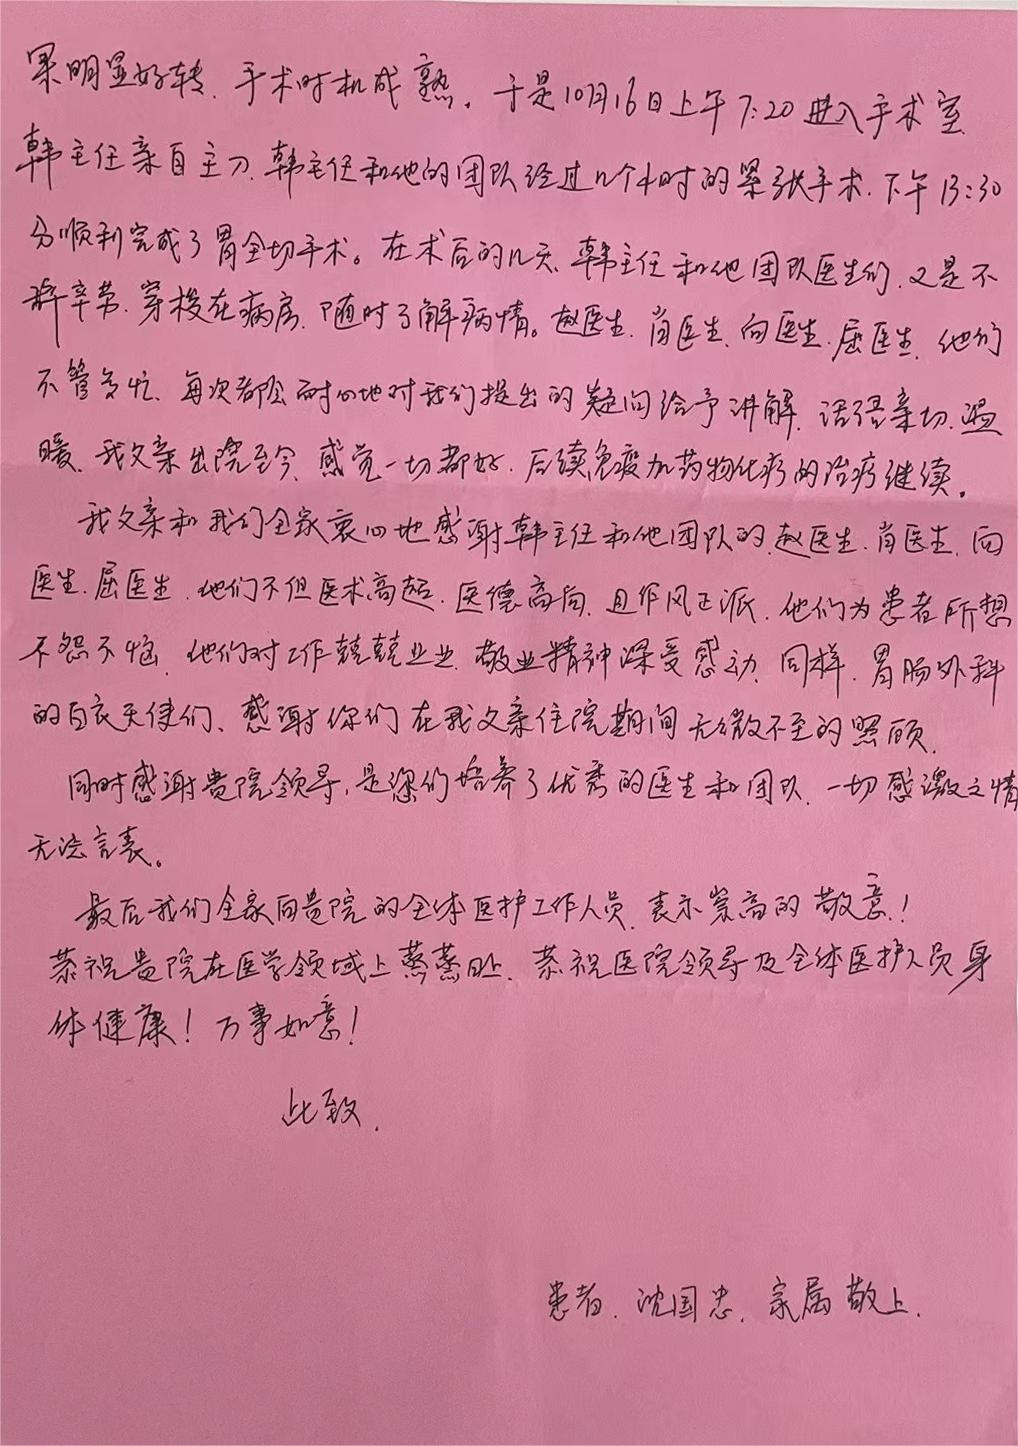 果明显好转、手术时机成熟。于是10月16日上午7:20进入手术室
韩主任亲自主刀、韩主任和他的团队经过几个小时的紧张手术、下午13:30
分顺利完成了胃全切手术。在术后的几天、韩主任和他团队医生们、又是不
辞辛劳、穿梭在病房、随时了解病情。赵医生、肖医生、向医生、屈医生、他们
不管多忙、每次都会耐心地对我们提出的疑问给予讲解、话语亲切、温
暖、我父亲出院至今、感觉一切都好、后续免疫加药物化疗的治疗继续。
我父亲和我们全家衷心地感谢韩主任和他团队的、赵医生、肖医生、向
医生、屈医生、他们不但医术高超、医德高尚、且作风正派、他们为患者所想
不怨不恼、他们对工作兢兢业业、敬业精神深受感动、同样、胃肠外科
的白衣天使们、感谢你们在我父亲住院期间无微不至的照顾、
同时感谢贵院领导,是您们培养了优秀的医生和团队、一切感激之情
无法言表。
最后我们全家向贵院的全体医护工作人员、表示崇高的敬意!
恭祝贵院在医学领域上蒸蒸日上、恭祝医院领导及全体医护人员身
体健康!万事如意!
此致、
患者、沈国忠、家属敬上、